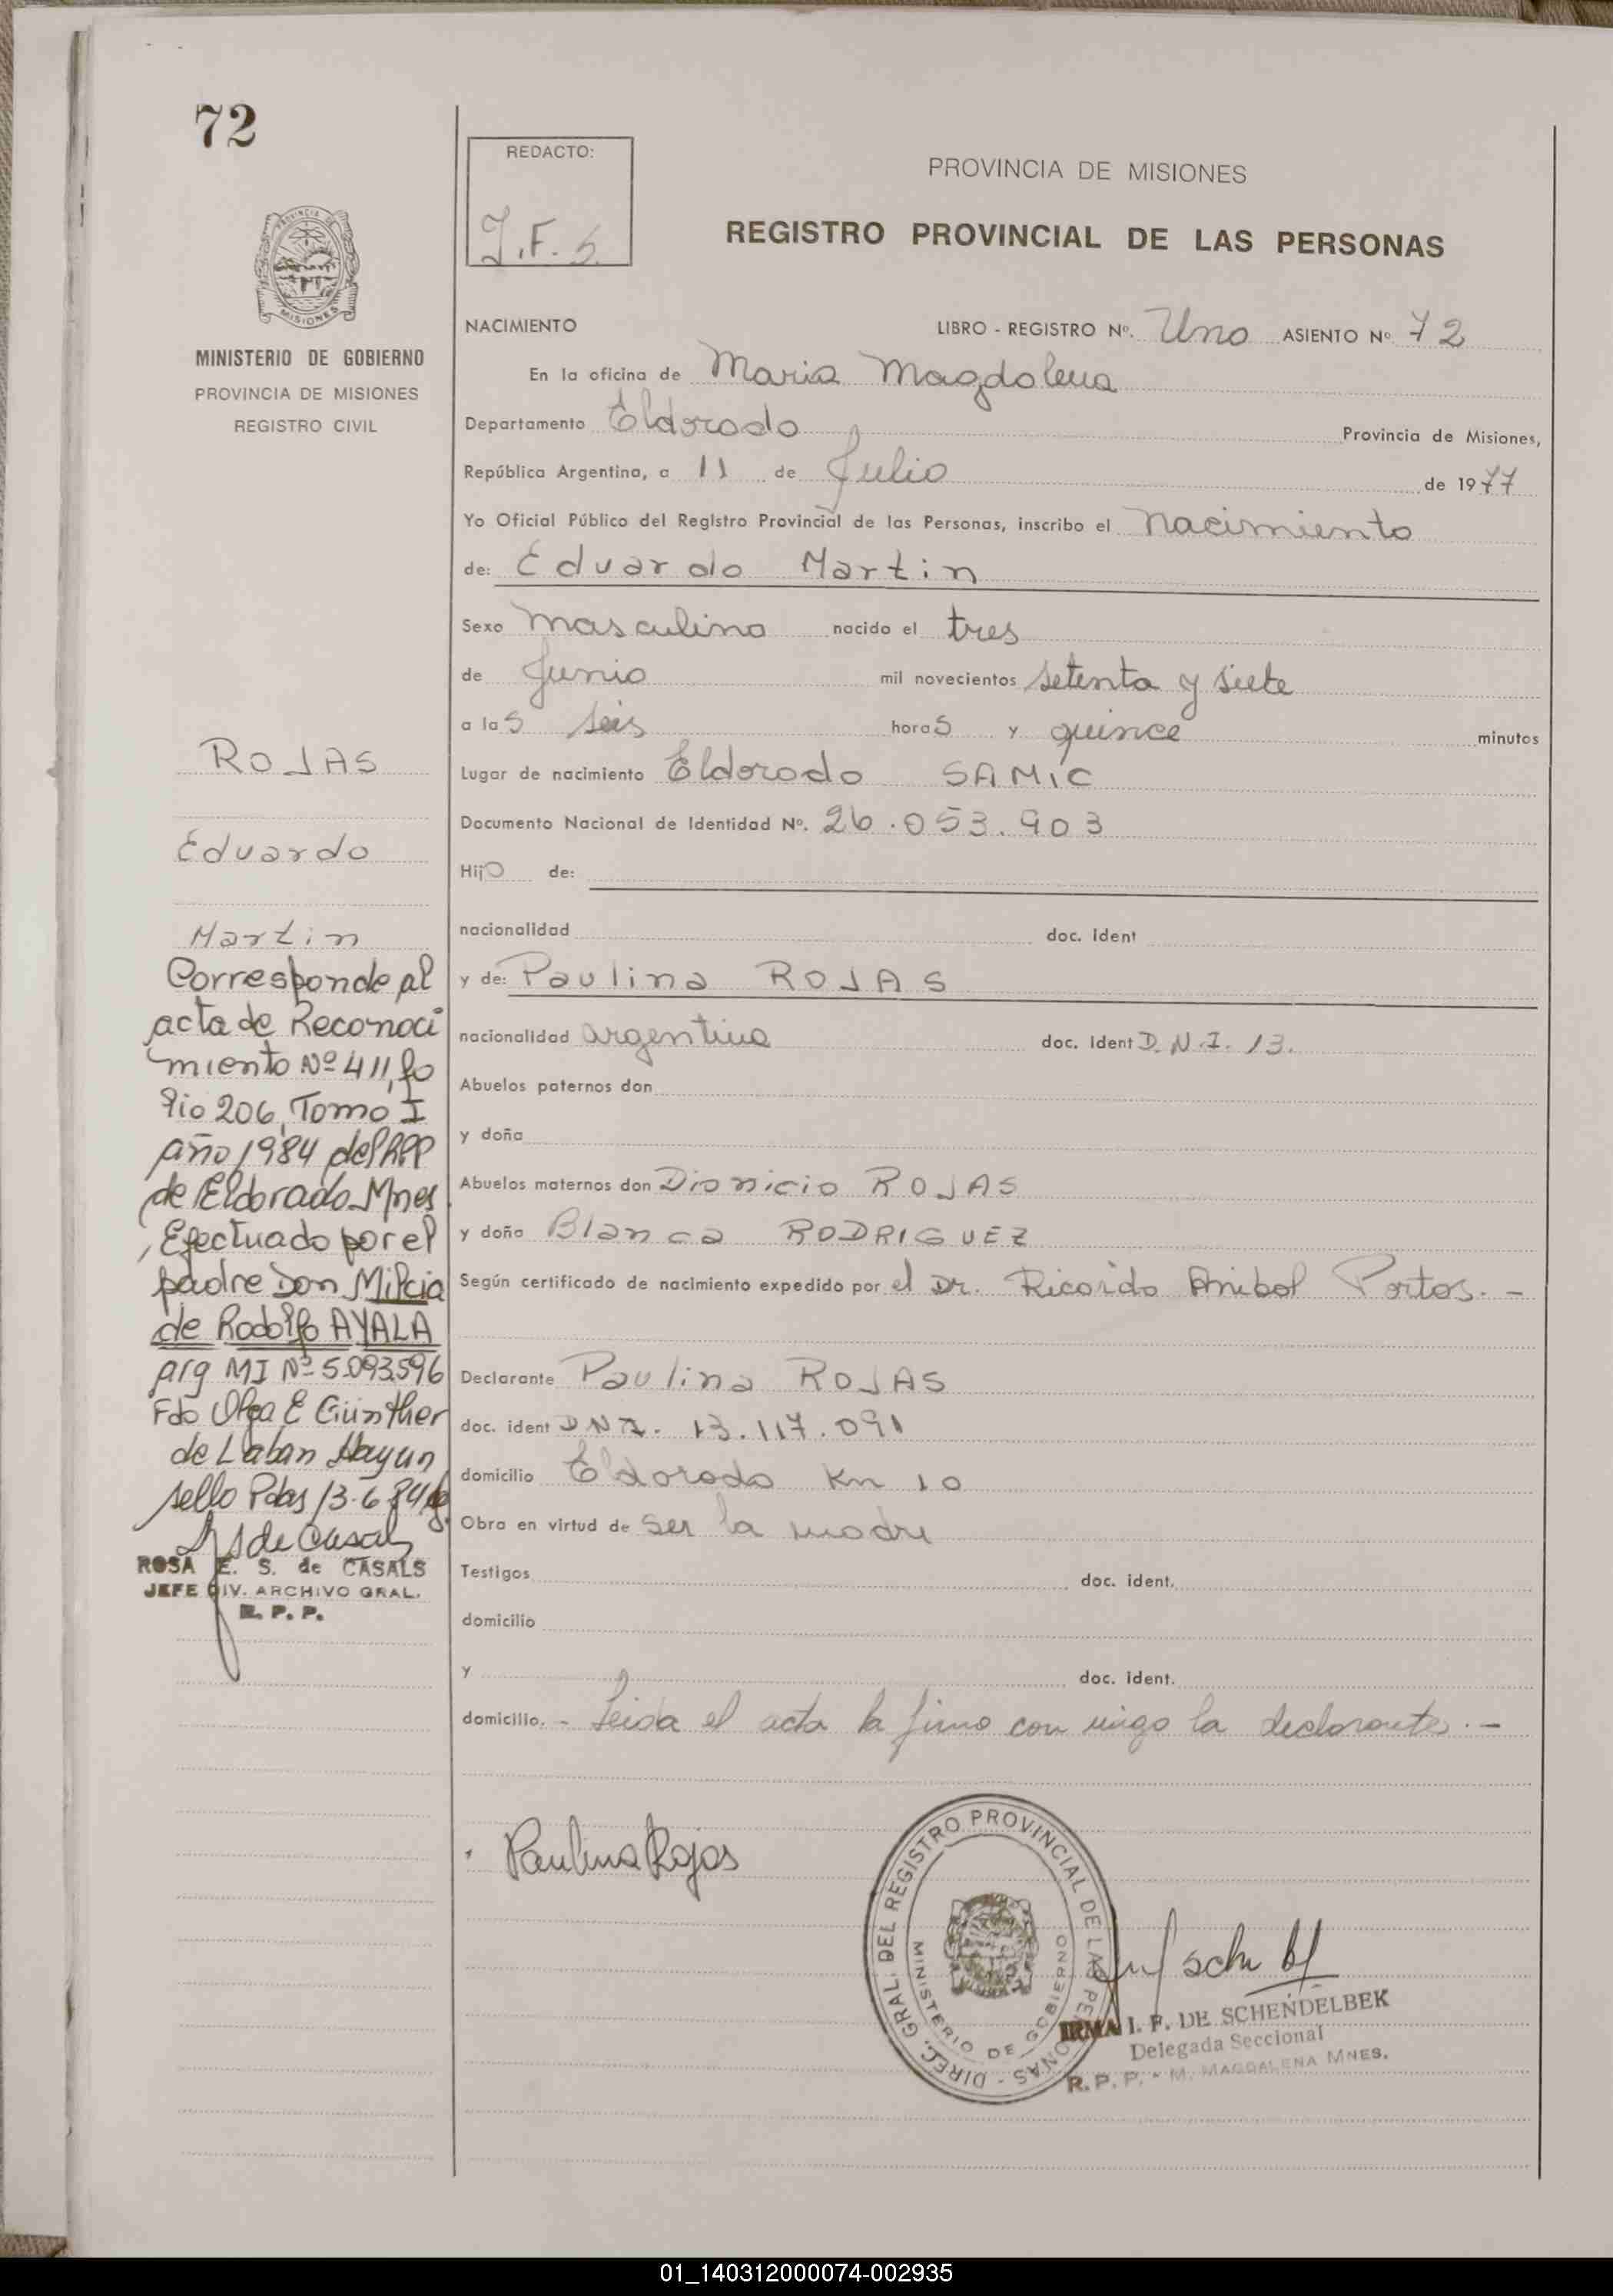 72
PROVINCIA DE
MISIONES
MINISTERIO DE GOBIERNO
PROVINCIA DE MISIONES
REGISTRO CIVIL
ROJAS
Eduardo
Martin
Corresponde al
acta de Reconoci
miento Nº 411, fo
lio 206, Tomo I
año 1984 del RPP
de Eldorado Mnes
, Efectuado por el
padre Don Milcia
de Rodolfo AYALA
arg MI Nº 5.093.596
Fdo Olga E Günther
de Laban Hay un
sello Pdas 13.6.84
ROSA E. S. de CASALS
JEFE DIV. ARCHIVO GRAL.
R. P. P.
REDACTO:
I.F.S.
PROVINCIA DE MISIONES
REGISTRO PROVINCIAL DE LAS PERSONAS
NACIMIENTO LIBRO - REGISTRO Nº. Uno ASIENTO Nº 72
En la oficina de Maria Magdalena
Departamento Eldorado Provincia de Misiones,
República Argentina, a 11 de Julio de 1977
Yo Oficial Público del Registro Provincial de las Personas, inscribo el nacimiento
de: Eduardo Martin
Sexo masculino nacido el tres
de Junio mil novecientos setenta y siete
a las seis horas y quince minutos
Lugar de nacimiento Eldorado SAMIC
Documento Nacional de Identidad Nº. 26.053.903
Hijo de:
nacionalidad doc. ident
y de: Paulina ROJAS
nacionalidad argentina doc. ident D.N.I. 13.
Abuelos paternos don
y doña
Abuelos maternos don Dionicio ROJAS
y doña Blanca RODRIGUEZ
Según certificado de nacimiento expedido por el Dr. Ricardo Anibal Portos. -
Declarante Paulina ROJAS
doc. ident DNI. 13.117.091
domicilio Eldorado Km 10
Obra en virtud de ser la madre
Testigos doc. ident.
domicilio
y doc. ident.
domicilio. - Leida el acta la firma con migo la declarante. -
Paulina Rojas
DIREC. GRAL. DEL REGISTRO PROVINCIAL DE LAS PERSONAS -
MINISTERIO DE GOBIERNO
IRMA I. F. DE SCHENDELBEK
Delegada Seccional
R. P. P. - M. MAGDALENA MNES.
01_140312000074-002935